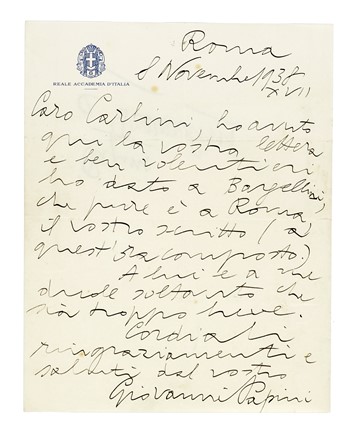 REALE ACCADEMIA D'ITALIA
Roma
8 Novembre 1938
XVII
Caro Carlini, ho avuto
qui la vostra lettera
e ben volentieri
ho dato a Bargellini,
che pure è a Roma
il vostro scritto (a
quest'ora composto).
A lui e a me
duole soltanto che
sia troppo breve.
Cordiali
ringraziamenti e
saluti dal vostro
Giovanni Papini